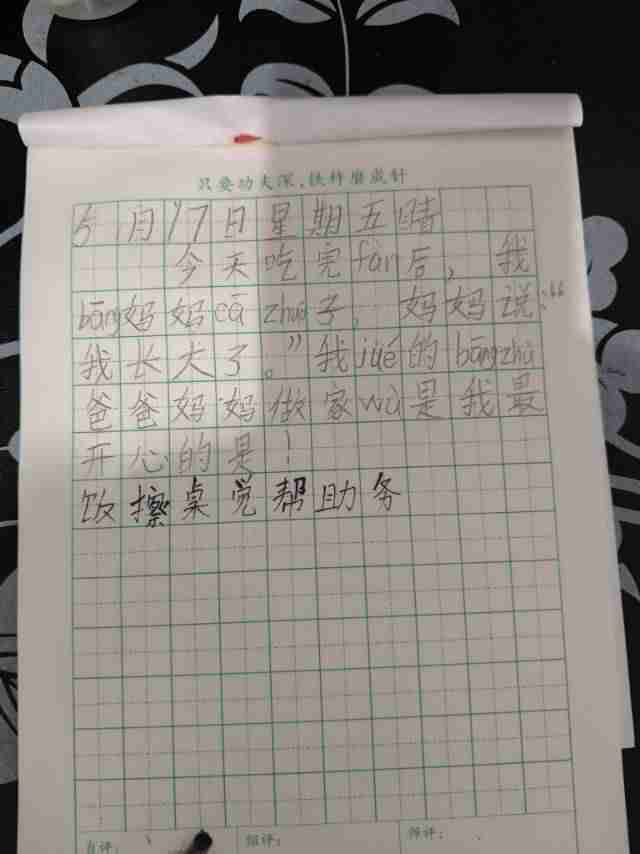 只要功夫深,铁杵磨成针
5月17日星期五晴
今天吃完fàn后,我
bāng妈妈cā zhuō子,妈妈说:“
我长大了。”我jué的bāngzhù
爸爸妈妈做家wù是我最
开心的是!
饭擦桌觉帮助务
自评: 组评: 师评: